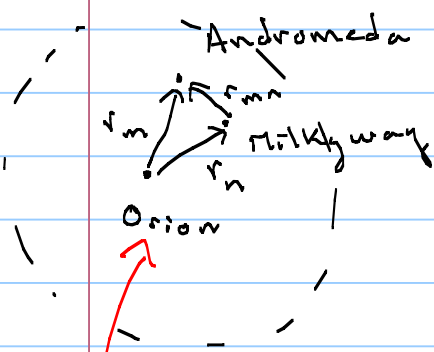 Andromeda
r_mn
r_m
Milkyway
r_n
Orion